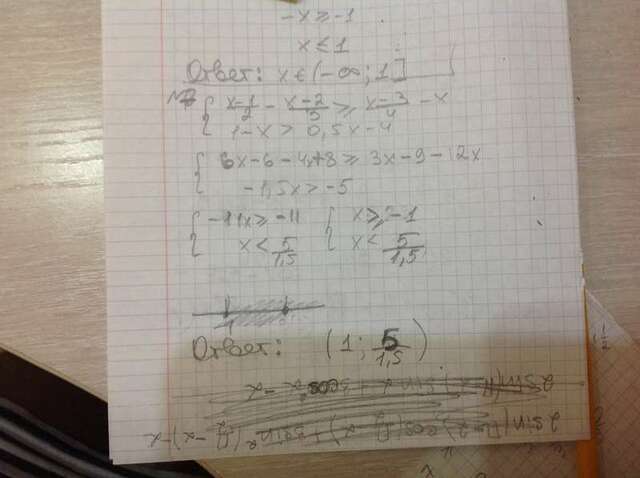 -x ≥ -1
x ≤ 1
Ответ: x ∈ (-∞; 1]
{ x-1/2 - x-2/3 ≥ x-3/4 - x
1-x > 0,5x-4
{ 6x-6-4x+8 ≥ 3x-9-12x
-1,5x > -5
{ -11x ≥ -11 { x ≥ -1
x < 5/1,5 x < 5/1,5
Ответ: (1; 5/1,5)